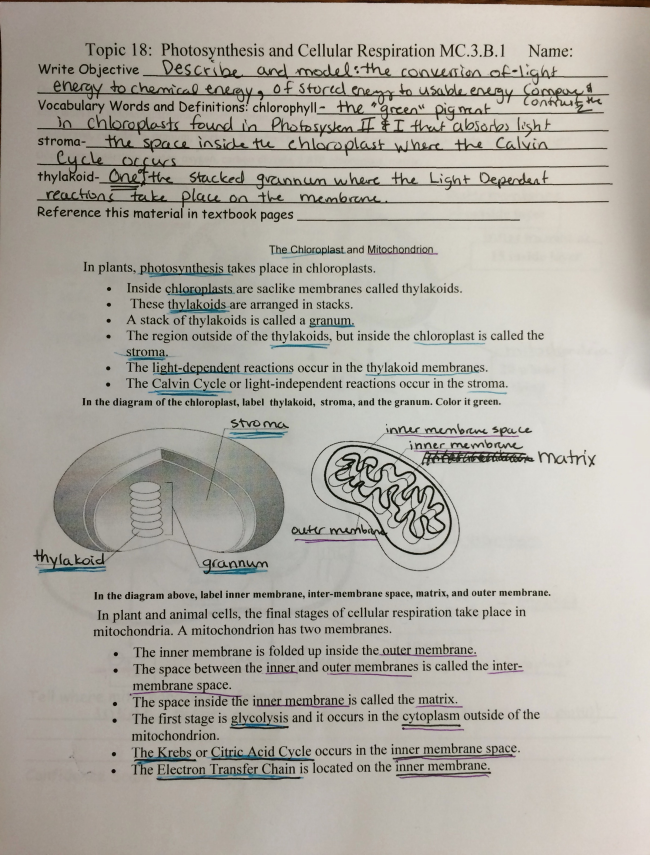 Topic 18: Photosynthesis and Cellular Respiration MC.3.B.1 Name:
Write Objective Describe and model: the convertion of light
energy to chemical energy, of stored energy to usable energy Compare &
Contrast the 2
Vocabulary Words and Definitions: chlorophyll- the "green" pigment
in chloroplasts found in Photosystem II & I that absorbs light
stroma- the space inside the chloroplast where the Calvin
Cycle occurs
thylakoid- One of the stacked grannum where the Light Dependent
reactions take place on the membrane.
Reference this material in textbook pages
The Chloroplast and Mitochondrion
In plants, photosynthesis takes place in chloroplasts.
• Inside chloroplasts are saclike membranes called thylakoids.
• These thylakoids are arranged in stacks.
• A stack of thylakoids is called a granum.
• The region outside of the thylakoids, but inside the chloroplast is called the
stroma.
• The light-dependent reactions occur in the thylakoid membranes.
• The Calvin Cycle or light-independent reactions occur in the stroma.
In the diagram of the chloroplast, label thylakoid, stroma, and the granum. Color it green.
stroma
thylakoid
grannum
inner membrane space
inner membrane
matrix
outer membrane
In the diagram above, label inner membrane, inter-membrane space, matrix, and outer membrane.
In plant and animal cells, the final stages of cellular respiration take place in
mitochondria. A mitochondrion has two membranes.
• The inner membrane is folded up inside the outer membrane.
• The space between the inner and outer membranes is called the inter-
membrane space.
• The space inside the inner membrane is called the matrix.
• The first stage is glycolysis and it occurs in the cytoplasm outside of the
mitochondrion.
• The Krebs or Citric Acid Cycle occurs in the inner membrane space.
• The Electron Transfer Chain is located on the inner membrane.